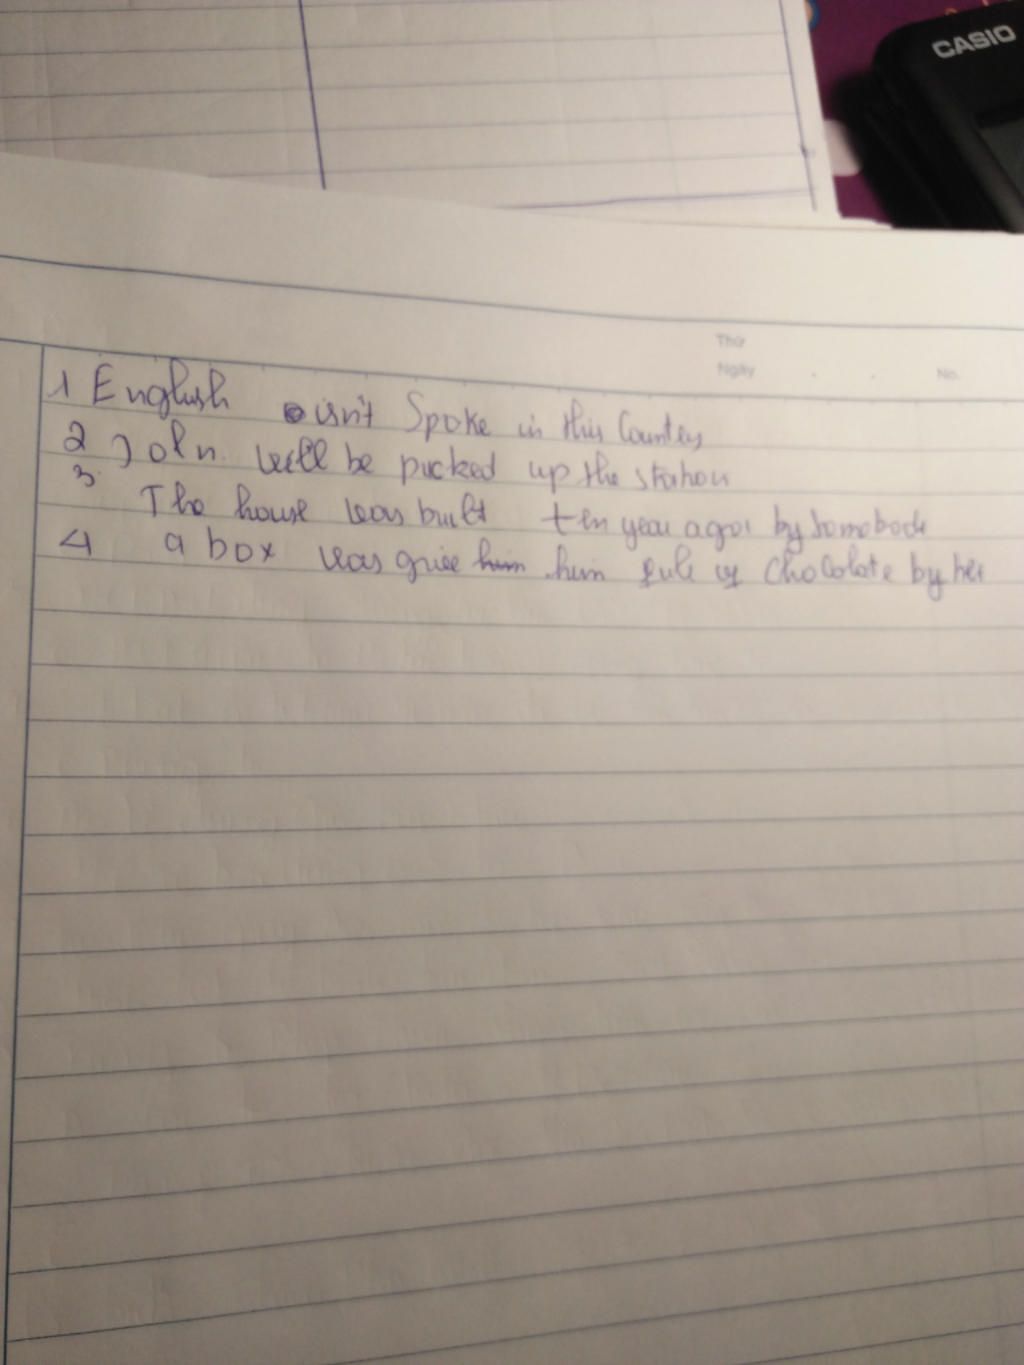 CASIO
Thứ
Ngày . . No.
1 English isn't Spoke in this Country
2 John will be picked up the station
3 The house was built ten year agoi by somebode
4 a box was give him him fule of Chocolate by her